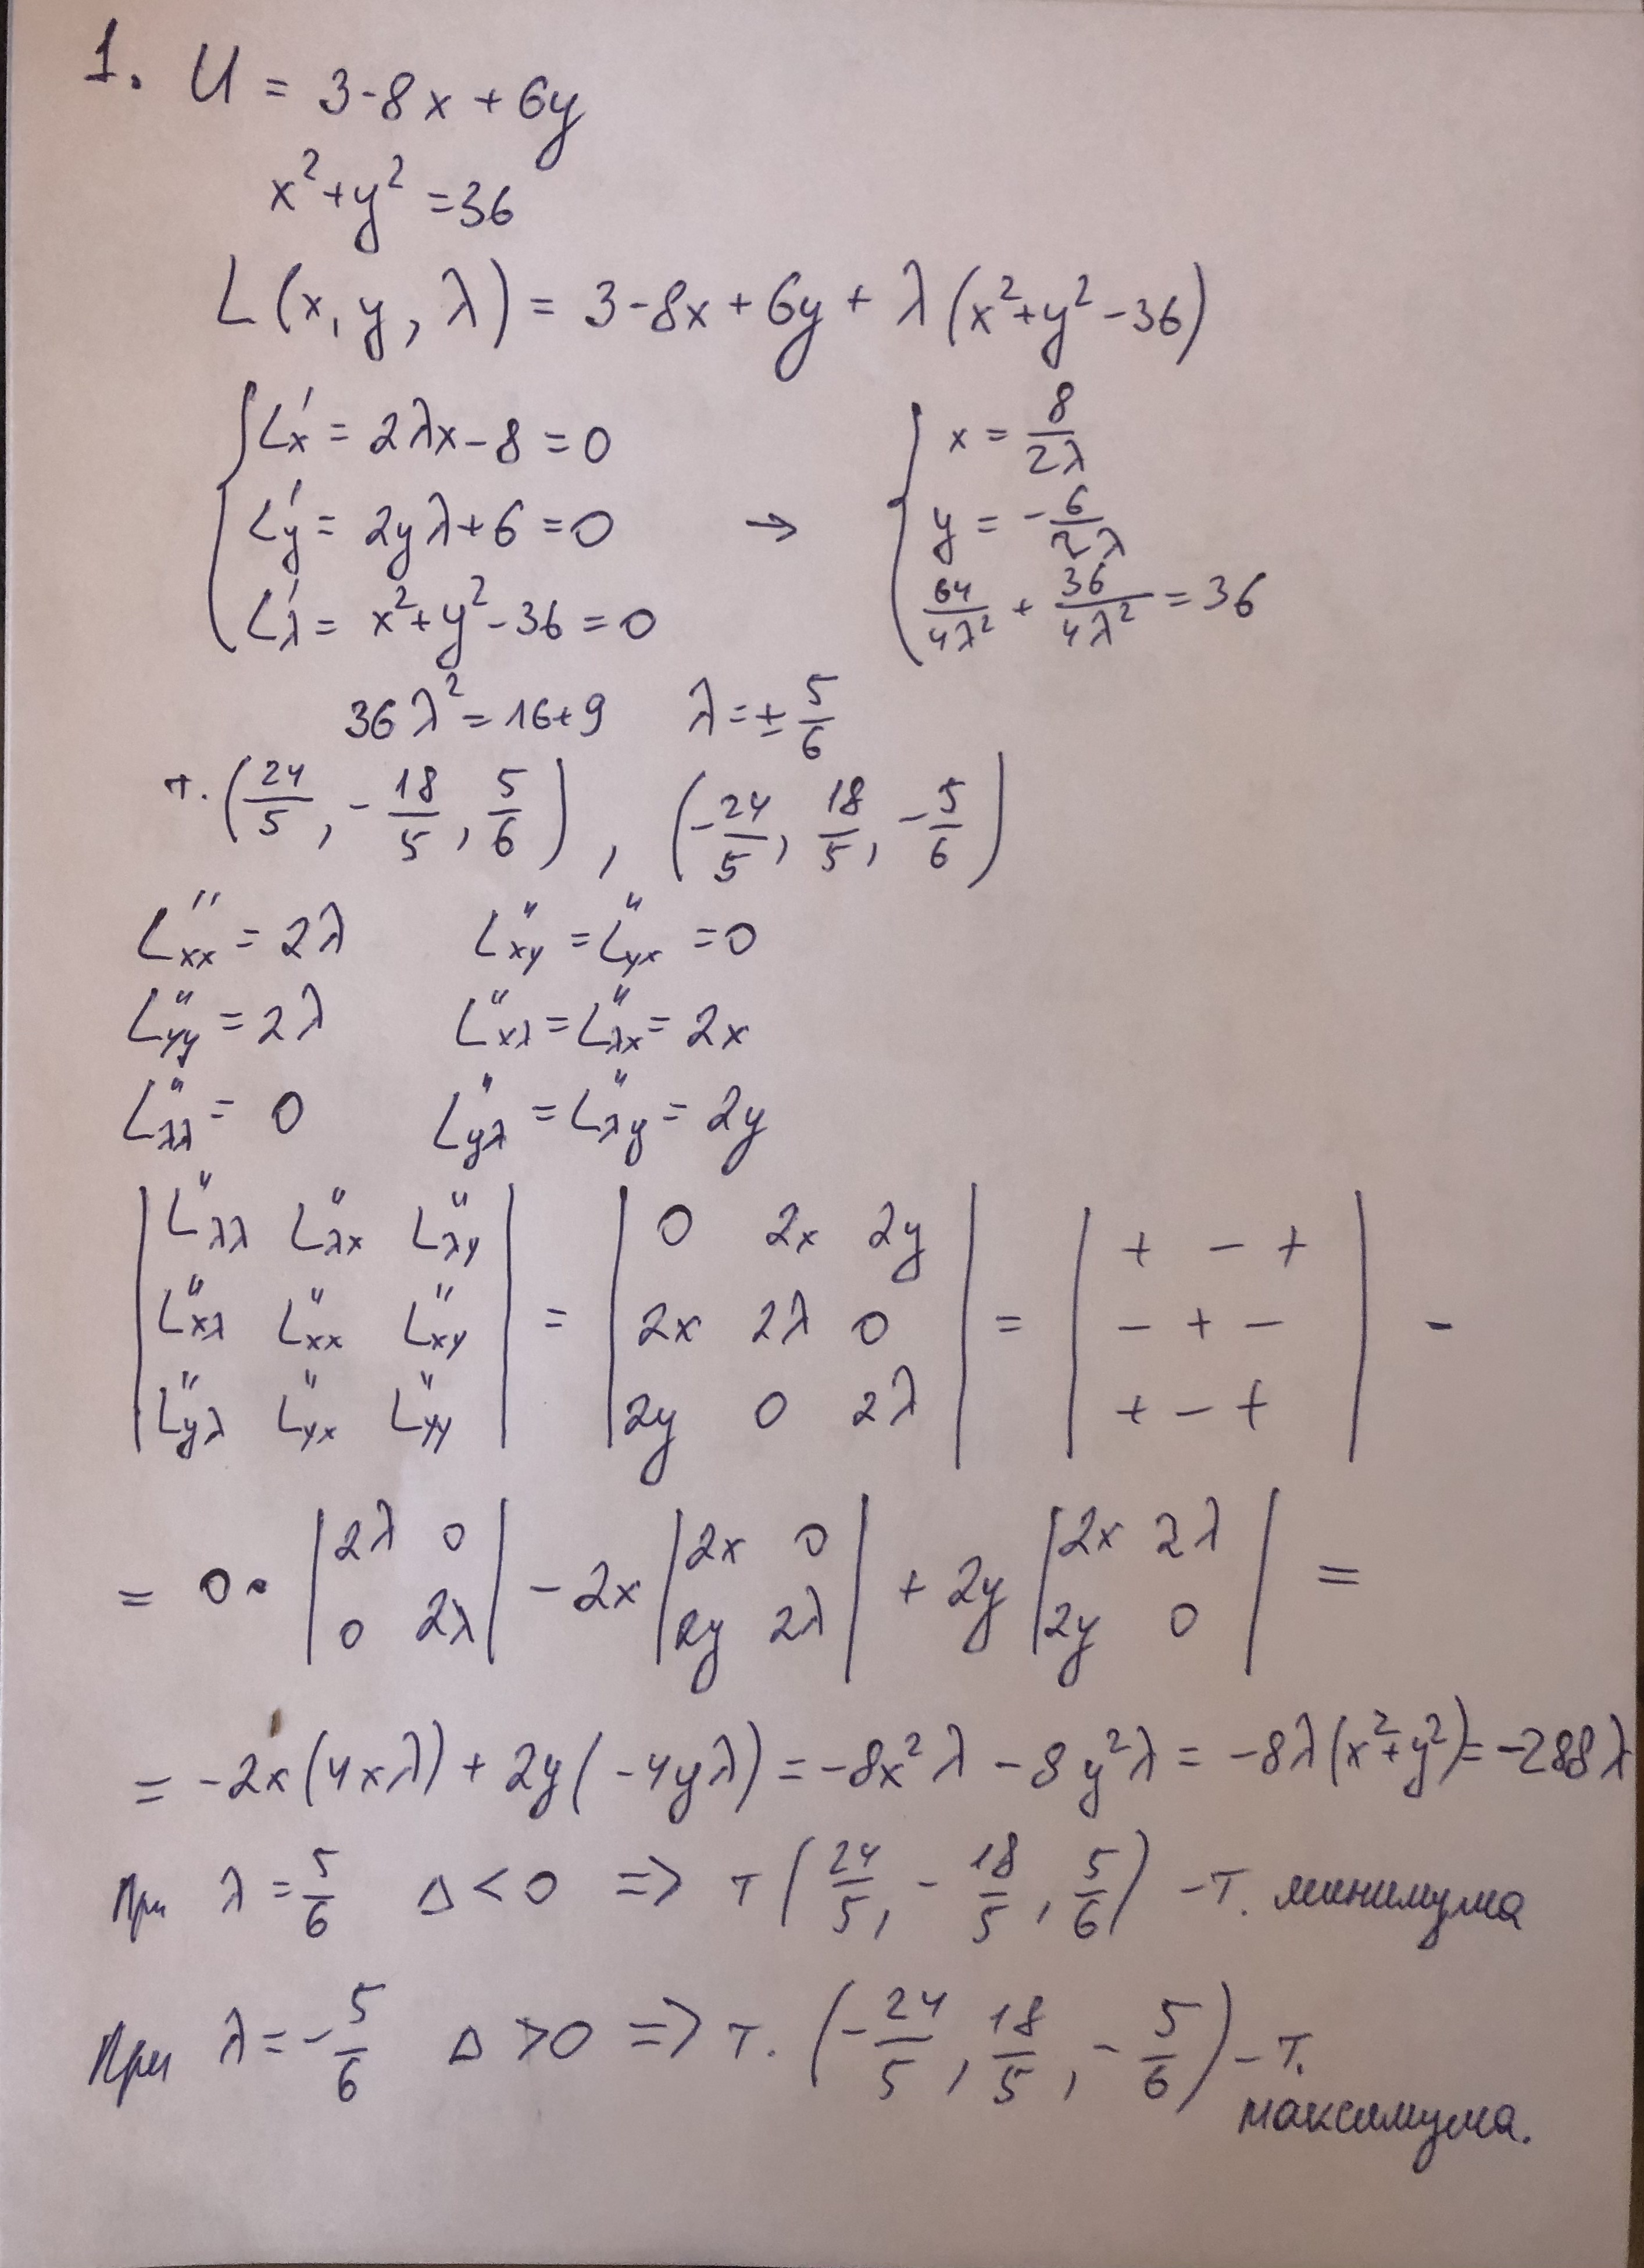 1. U = 3-8x+6y
x²+y²=36
L(x, y, λ) = 3-8x+6y+λ(x²+y²-36)
{ L'x = 2λx-8=0 → { x = 8/2λ
L'y = 2yλ+6=0 y = -6/2λ
L'λ = x²+y²-36=0 64/4λ² + 36/4λ² = 36
36λ²=16+9 λ=±5/6
т. (24/5, -18/5, 5/6), (-24/5, 18/5, -5/6)
L''xx = 2λ L''xy = L''yx = 0
L''yy = 2λ L''xλ = L''λx = 2x
L''λλ = 0 L''yλ = L''λy = 2y
| L''λλ L''λx L''λy | | 0 2x 2y | | + - + |
| L''xλ L''xx L''xy | = | 2x 2λ 0 | = | - + - | -
| L''yλ L''yx L''yy | | 2y 0 2λ | | + - + |
= 0· | 2λ 0 | - 2x | 2x 0 | + 2y | 2x 2λ | =
| 0 2λ | | 2y 2λ | | 2y 0 |
= -2x(4xλ) + 2y(-4yλ) = -8x²λ - 8y²λ = -8λ(x²+y²) = -288λ
При λ = 5/6 Δ < 0 => т (24/5, -18/5, 5/6) - т. минимума
При λ = -5/6 Δ > 0 => т. (-24/5, 18/5, -5/6) - т.
максимума.